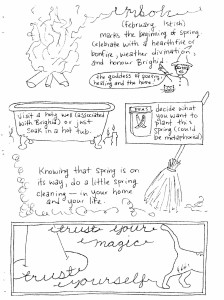 imbolc
(february 1st ish)
marks the beginning of spring.
Celebrate with a hearthfire or
bonfire, weather divination,
and honour Brighid.
The goddess of poetry,
healing and the home.
Visit a holy well (associated
with Brighid) or just
soak in a hot tub.
decide what
you want to
plant this
spring (could
be metaphoral)
Knowing that spring is on
its way, do a little spring
cleaning — in your home
and your life.
trust your
magic
trust
yourself